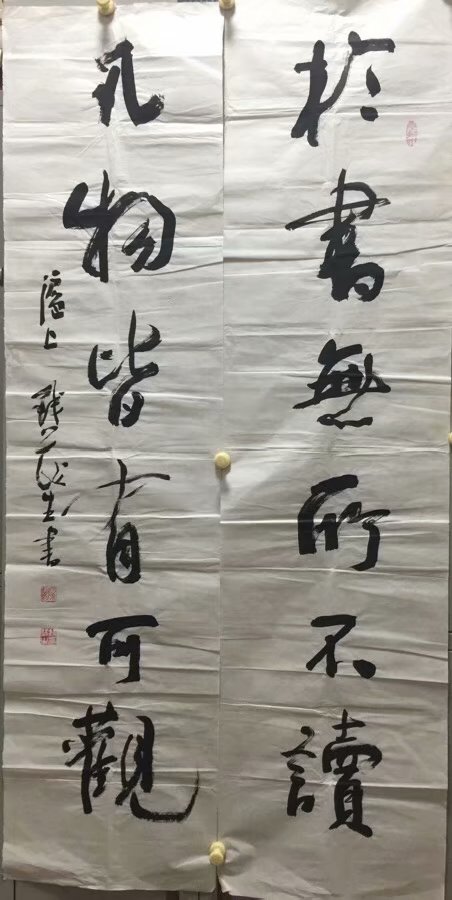 於書無所不讀
凡物皆有可觀
滬上 錢茂生書